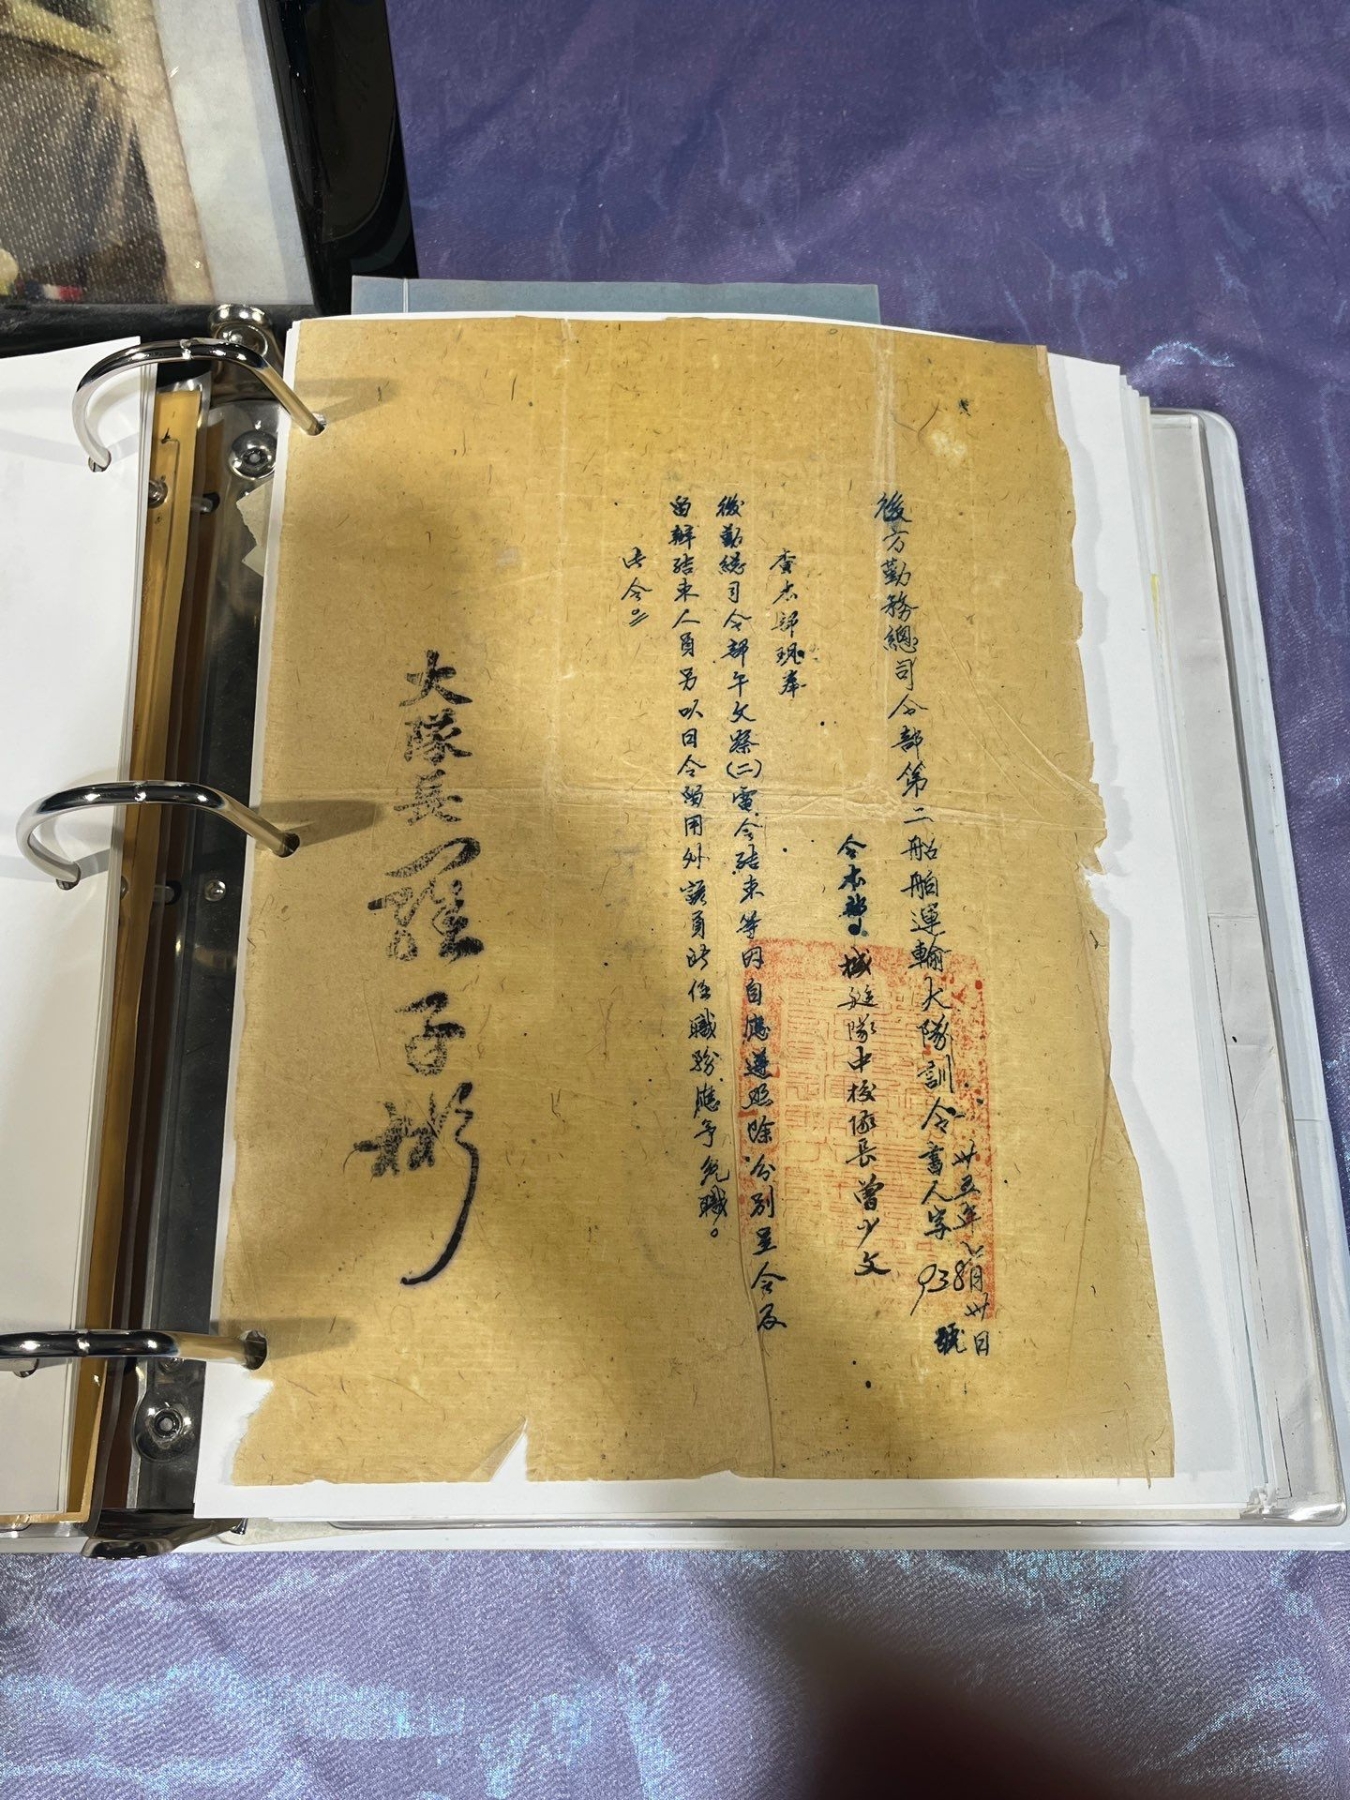 後方勤務總司令部第二船舶運輸大隊訓令 書人字 938 號
卅五年 月卅日
令本 艇隊中校隊長曾少文
查本部現奉
後勤總司令部午文 (二)電令結束等因自應遵照除分別呈令及
留辦結束人員另以日令 用外該員所任職務應予免職。
此令
大隊長 羅子彬